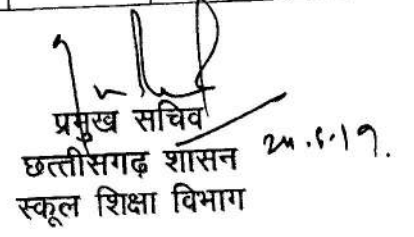 प्रमुख सचिव
छत्तीसगढ़ शासन
स्कूल शिक्षा विभाग